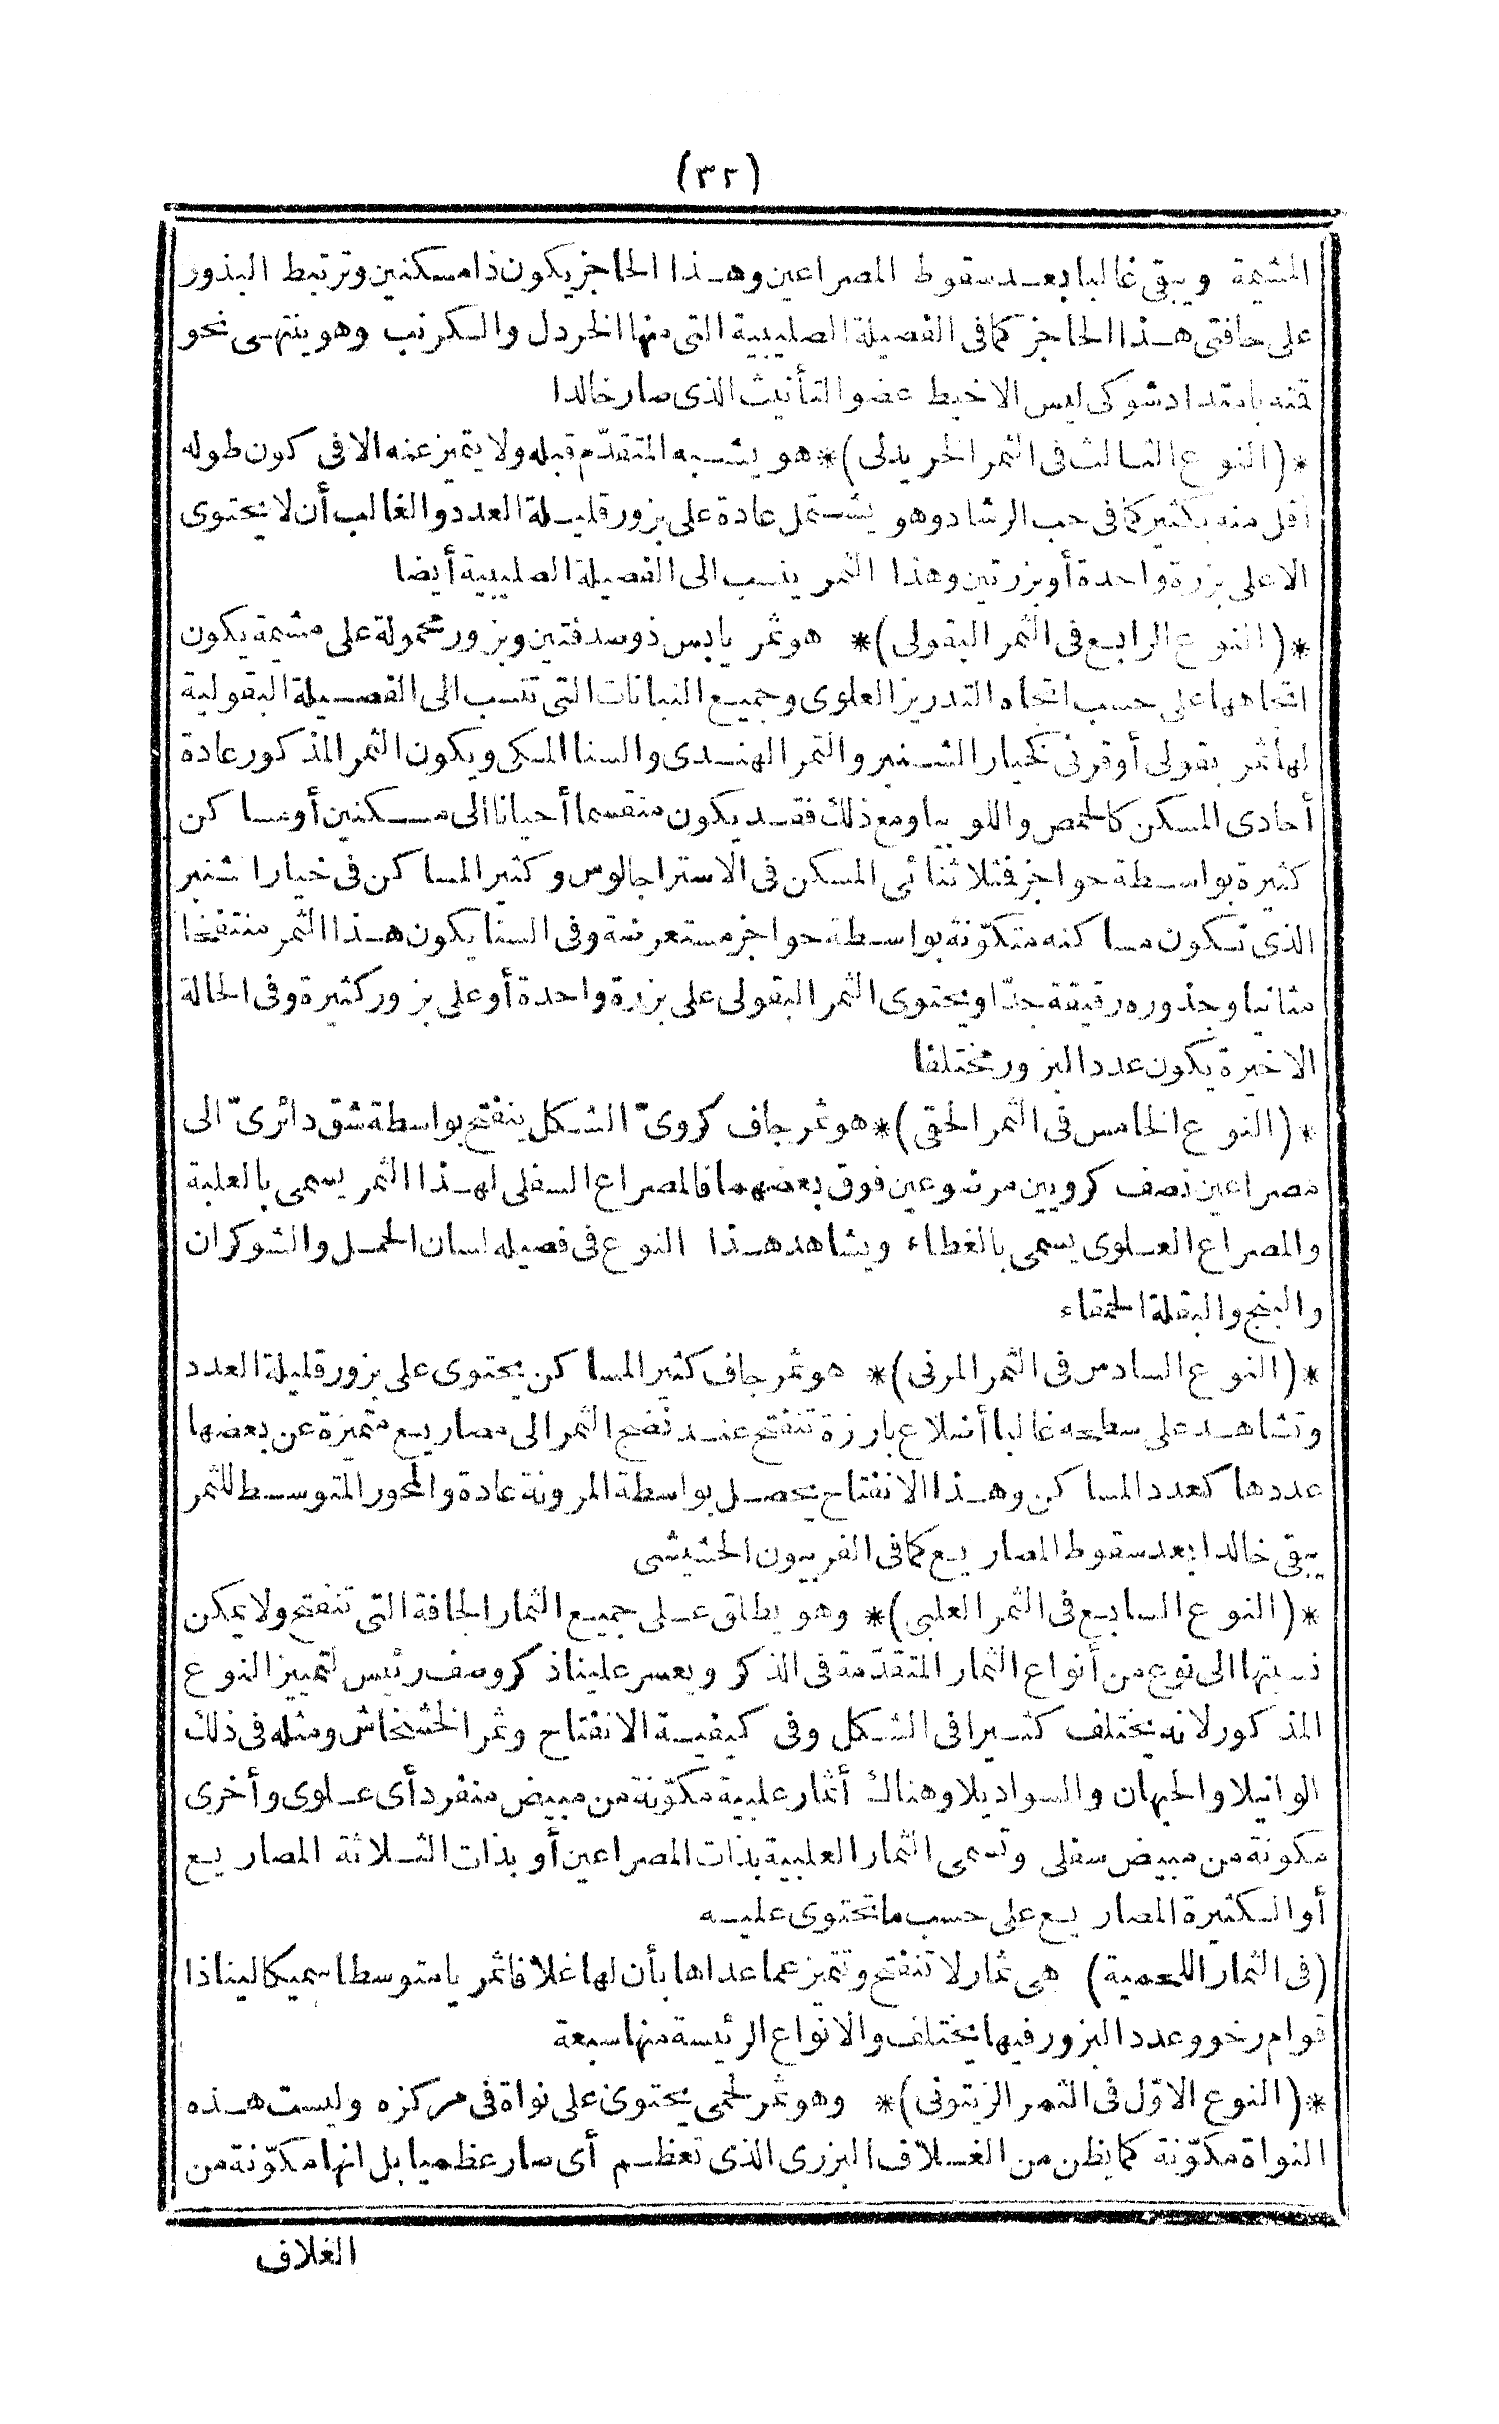 (٣٢)
المشيمة ويبقى غالبا بعد سقوط المصراعين وهذا الحاجز يكون ذا مسكنين وترتبط البذور
على حافتى هذا الحاجز كما فى الفصيلة الصليبية التى منها الخردل والسكرنب وهو ينتهى نحو
قمته بامتداد شوكى ليس الا خيط عضو التأنيث الذى صار خالدا
*(النوع الثالث فى الثمر الخريدلى)* هو يشبه المتقدّم قبله ولا يتميز عنه الا فى كون طوله
أقل منه بكثير كما فى حب الرشاد وهو يشتمل عادة على بزور قليلة العدد والغالب أن لا يحتوى
الا على بزرة واحدة أو بزرتين وهذا الثمر ينسب الى الفصيلة الصليبية أيضا
*(النوع الرابع فى الثمر البقولى)* هو ثمر يابس ذو صدفتين وبزور محمولة على مشيمة يكون
اتجاهها على حسب اتجاه التدريز العلوى وجميع النباتات التى تنسب الى الفصيلة البقولية
لها ثمر بقولى أو قرنى كخيار الشنبر والتمر الهندى والسنا المكى ويكون الثمر المذكور عادة
أحادى المسكن كالحمص واللوبيا ومع ذلك فقد يكون منقسما أحيانا الى مسكنين أو مساكن
كثيرة بواسطة حواجز فمثلا ثنائى المسكن فى الاستراجالوس وكثير المساكن فى خيار الشنبر
الذى تكون مساكنه متكوّنة بواسطة حواجز مستعرضة وفى السنا يكون هذا الثمر منتفخا
مثانيا وجذوره رقيقة جدّا ويحتوى الثمر البقولى على بزرة واحدة أو على بزور كثيرة وفى الحالة
الاخيرة يكون عدد البزور مختلفا
*(النوع الخامس فى الثمر الحقى)* هو ثمر جاف كروىّ الشكل ينفتح بواسطة شق دائرىّ الى
مصراعين نصف كرويين موضوعين فوق بعضهما فالمصراع السفلى لهذا الثمر يسمى بالعلبة
والمصراع العلوى يسمى بالغطاء ويشاهد هذا النوع فى فصيله لسان الحمل والشوكران
والبنج والبقلة الحمقاء
*(النوع السادس فى الثمر المرنى)* هو ثمر جاف كثير المساكن يحتوى على بزور قليلة العدد
وتشاهد على سطحه غالبا أضلاع بارزة تنفتح عند نضج الثمر الى مصاريع متميزة عن بعضها
عددها كعدد المساكن وهذا الانفتاح يحصل بواسطة المرونة عادة والمحور المتوسط للثمر
يبقى خالدا بعد سقوط المصاريع كما فى الفربيون الحشيشى
*(النوع السابع فى الثمر العلبى)* وهو يطلق على جميع الثمار الجافة التى تنفتح ولا يمكن
نسبتها الى نوع من أنواع الثمار المتقدّمة فى الذكر ويعسر علينا ذكر وصف رئيس لتمييز النوع
المذكور لانه يختلف كثيرا فى الشكل وفى كيفية الانفتاح وثمر الخشخاش ومثله فى ذلك
الوانيلا والحبهان والسواديلا وهناك أثمار علبية مكوّنة من مبيض منفرد أى علوى وأخرى
مكونة من مبيض سفلى وتسمى الثمار العلبية بذات المصراعين أو بذات الثلاثة المصاريع
أو الكثيرة المصاريع على حسب ما تحتوى عليه
(فى الثمار اللحمية) هى ثمار لا تنفتح وتتميز عما عداها بأن لها غلافا ثمريا متوسطا سميكا لينا ذا
قوام رخو وعدد البزور فيها يختلف والانواع الرئيسة منها سبعة
*(النوع الاوّل فى الثمر الزيتونى)* وهو ثمر لحمى يحتوى على نواة فى مركزه وليست هذه
النواة مكوّنة كما يظن من الغلاف البزرى الذى تعظم أى صار عظميا بل انها مكوّنة من
الغلاف